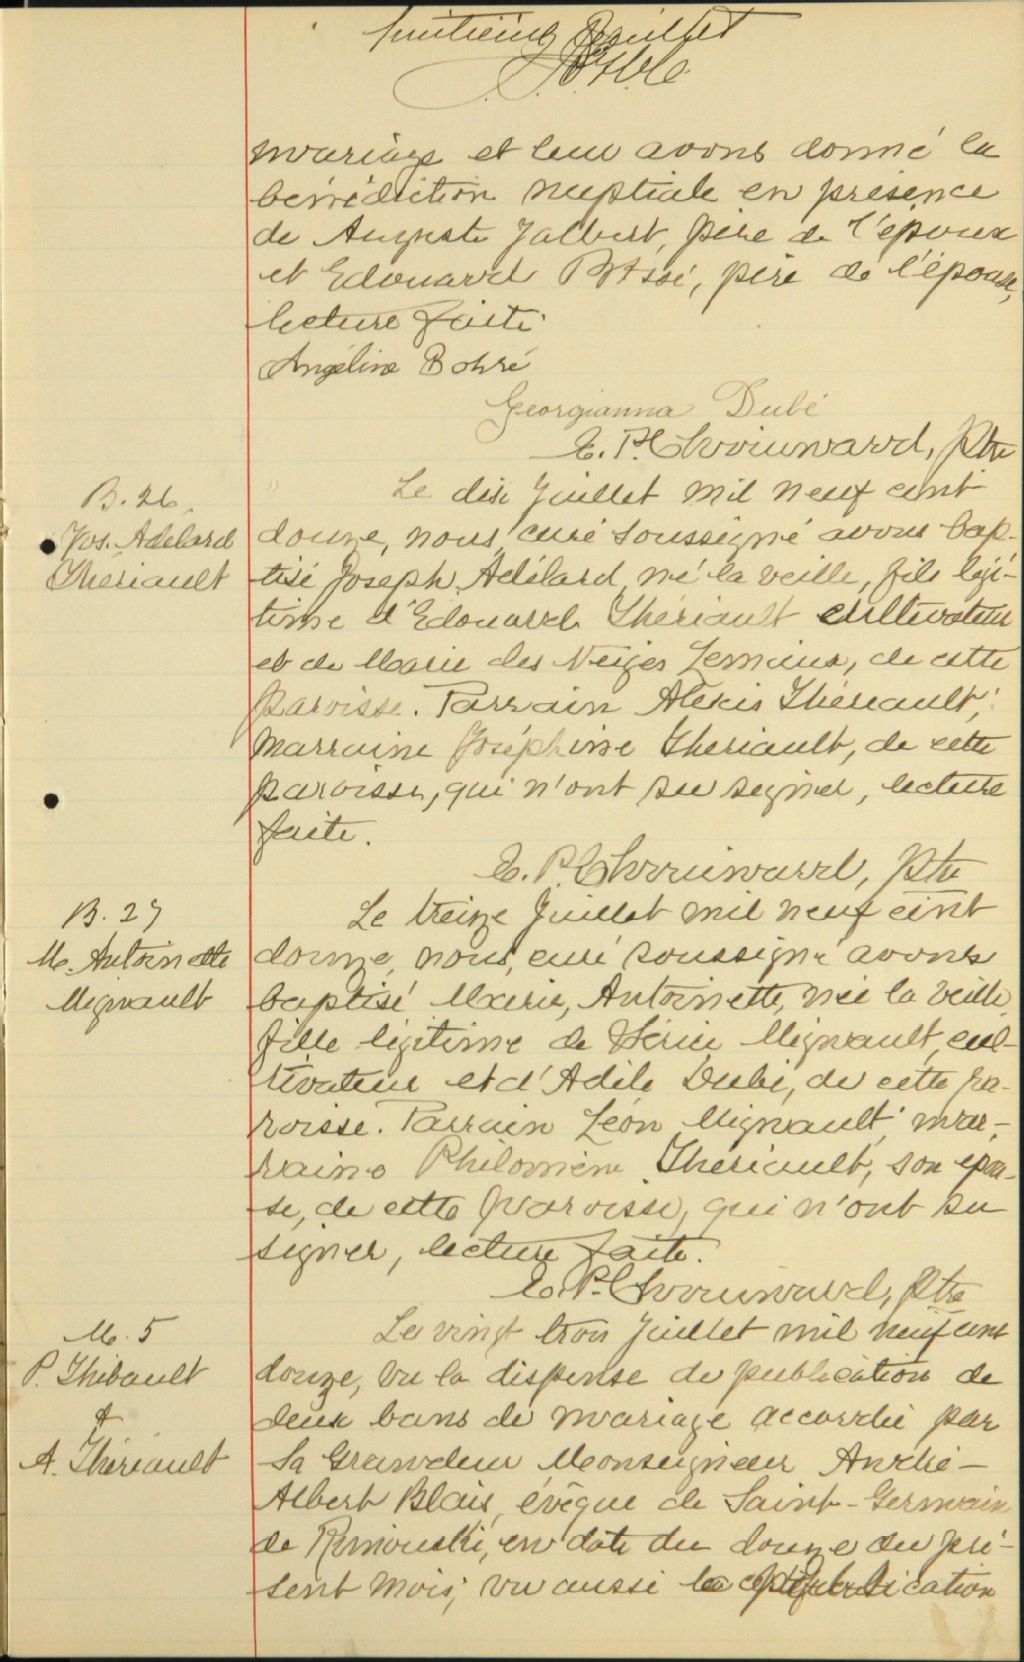 huitième feuillet
mariage et leur avons donné la
bénédiction nuptiale en présence
de Auguste Jalbert, père de l'époux
et Edouard Bossé, père de l'épouse,
lecture faite.
Angéline Bossé
Georgianna Dubé
E. P. Chouinard, Ptre
B. 26.
Jos. Adélard
Thériault
Le dix Juillet mil neuf cent
douze, nous, curé soussigné avons bap-
tisé Joseph Adélard, né la veille, fils légi-
time d'Edouard Thériault cultivateur
et de Marie des Neiges Lemieux, de cette
paroisse. Parrain Alexis Thériault;
marraine Joséphine Thériault, de cette
paroisse, qui n'ont su signer, lecture
faite.
E. P. Chouinard, Ptre
B. 27
M. Antoinette
Mignault
Le treize Juillet mil neuf cent
douze, nous, curé soussigné avons
baptisé Marie, Antoinette, née la veille,
fille légitime de Mignault, cul-
tivateur et d'Adèle Dubé, de cette pa-
roisse. Parrain Léon Mignault; mar-
raine Philomène Thériault, son épou-
se, de cette paroisse, qui n'ont su
signer, lecture faite.
E. P. Chouinard, Ptre
M. 5
P. Thibault
&
A. Thériault
Le vingt trois Juillet mil neuf cent
douze, vu la dispense de publication de
deux bans de mariage accordée par
Sa Grandeur Monseigneur André-
Albert Blais, évêque de Saint-Germain
de Rimouski, en date du douze du pré-
sent mois; vu aussi la publication